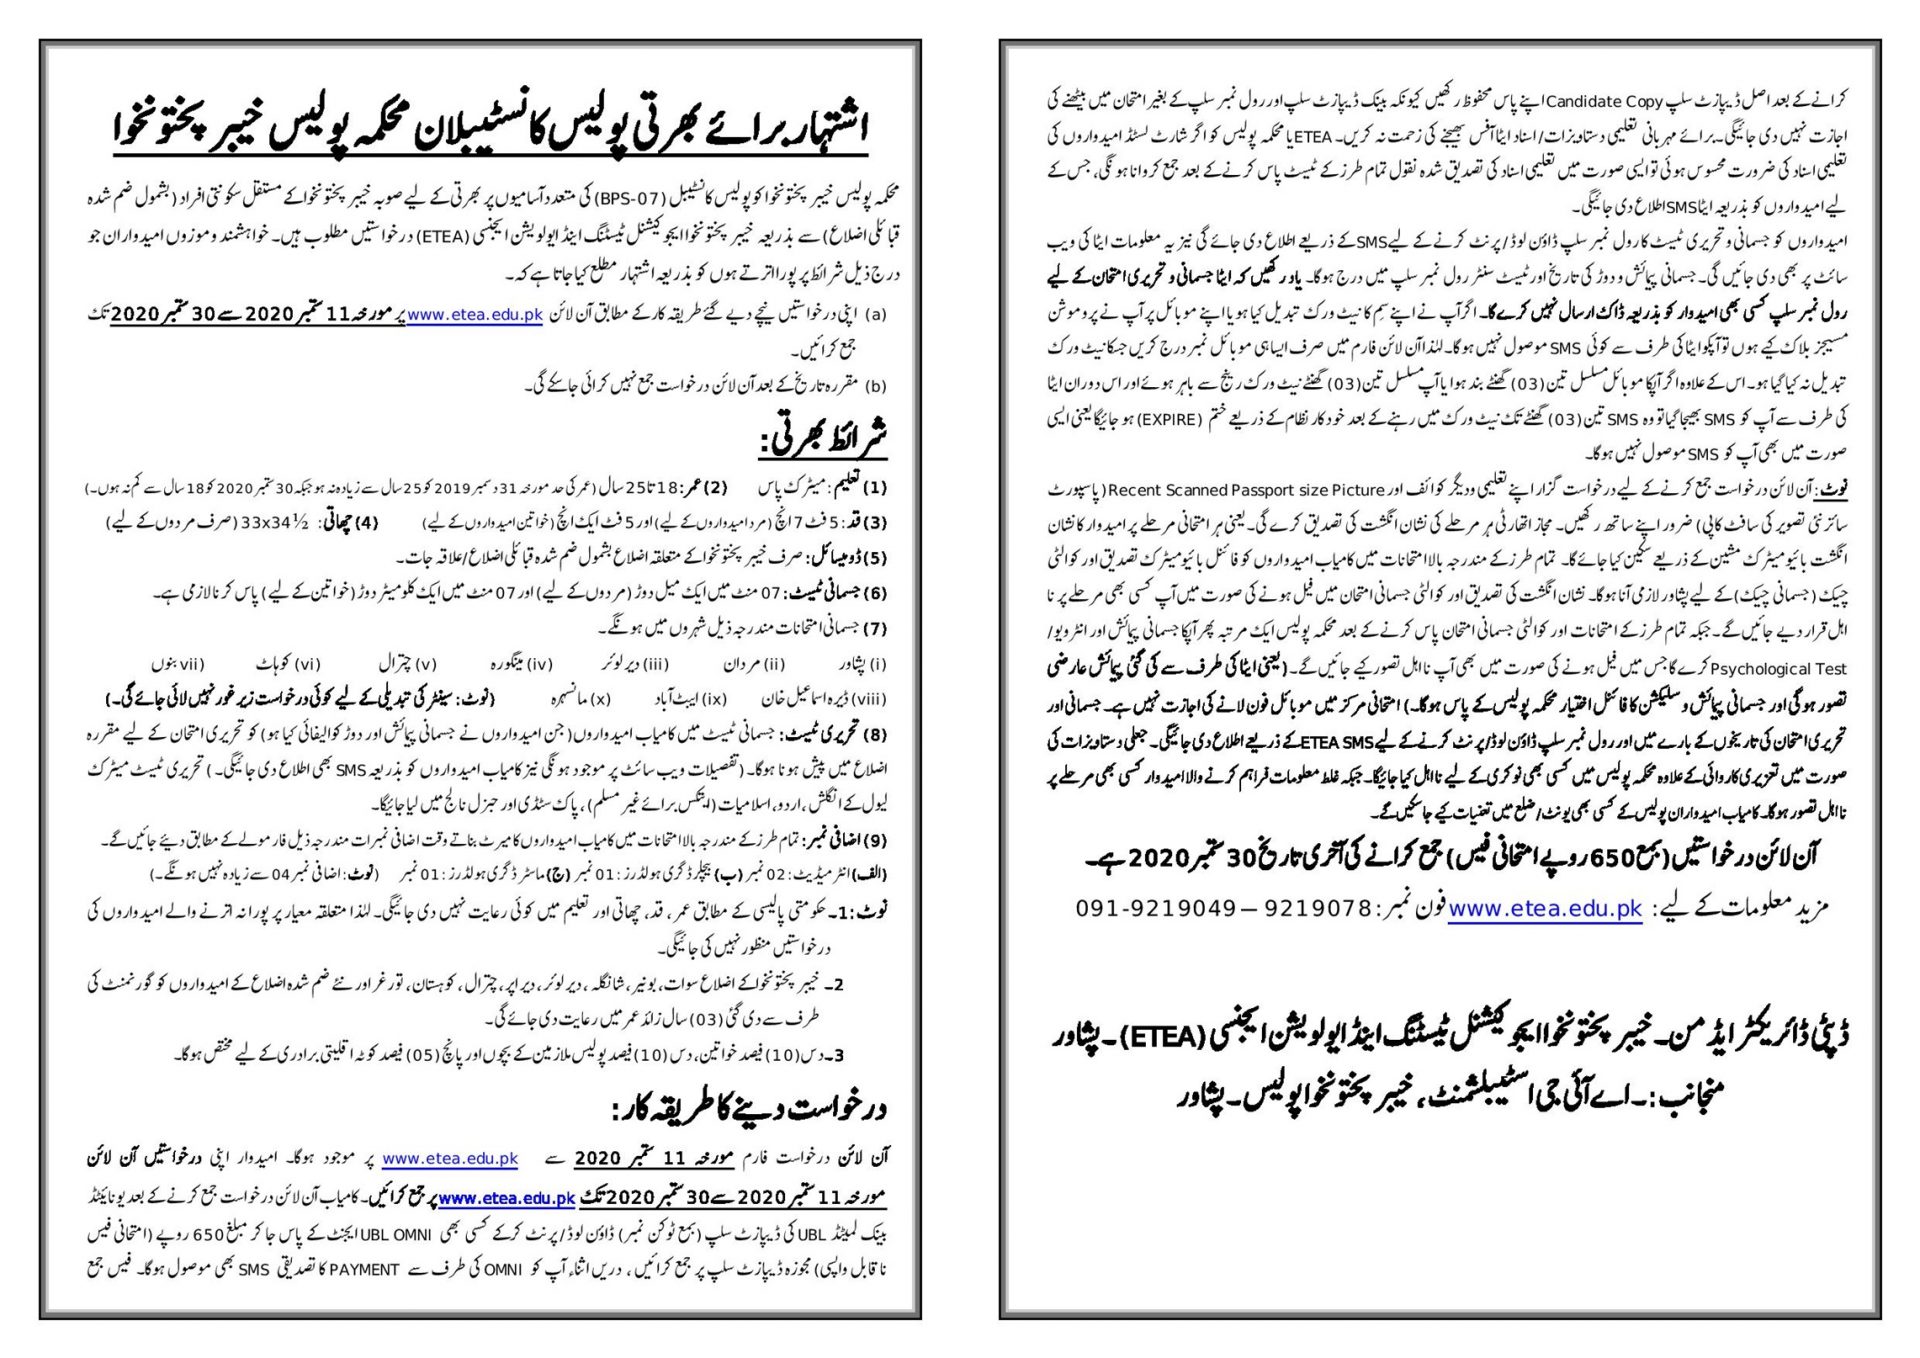 اشتہار برائے بھرتی پولیس کانسٹیبلان محکمہ پولیس خیبر پختونخوا
محکمہ پولیس خیبر پختونخوا کو پولیس کانٹیبل (BPS-07) کی متعدد آسامیوں پر بھرتی کے لیے صوبہ خیبر پختونخوا کے مستقل سکونتی افراد (بشمول ضم شدہ
قبائلی اضلاع) سے بذریعہ خیبر پختونخوا ایجوکیشنل ٹیسٹنگ اینڈ ایولویشن ایجنسی (ETEA) درخواستیں مطلوب ہیں۔ خواہشمند و موزوں امیدواران جو
درج ذیل شرائط پر پورا اترتے ہوں کو بذریعہ اشتہار مطلع کیا جاتا ہے کہ۔
(a) اپنی درخواستیں نیچے دیے گئے طریقہ کار کے مطابق آن لائن www.etea.edu.pk پر مورخہ 11 ستمبر 2020 سے 30 ستمبر 2020 تک
جمع کرائیں۔
(b) مقررہ تاریخ کے بعد آن لائن درخواست جمع نہیں کرائی جاسکے گی۔
شرائط بھرتی:
(1) تعلیم: میٹرک پاس (2) عمر: 18 تا 25 سال (عمر کی حد مورخہ 31 دسمبر 2019 کو 25 سال سے زیادہ نہ ہو جبکہ 30 ستمبر 2020 کو 18 سال سے کم نہ ہوں۔)
(3) قد: 5 فٹ 7 انچ (مرد امیدواروں کے لیے) اور 5 فٹ ایک انچ (خواتین امیدواروں کے لیے) (4) چھاتی: 33x34½ (صرف مردوں کے لیے)
(5) ڈومیسائل: صرف خیبر پختونخوا کے متعلقہ اضلاع بشمول ضم شدہ قبائلی اضلاع/علاقہ جات۔
(6) جسمانی ٹیسٹ: 07 منٹ میں ایک میل دوڑ (مردوں کے لیے) اور 07 منٹ میں ایک کلومیٹر دوڑ (خواتین کے لیے) پاس کرنا لازمی ہے۔
(7) جسمانی امتحانات مندرجہ ذیل شہروں میں ہونگے۔
(i) پشاور (ii) مردان (iii) دیر لوئر (iv) مینگورہ (v) چترال (vi) کوہاٹ (vii بنوں
(viii) ڈیرہ اسماعیل خان (ix) ایبٹ آباد (x) مانسہرہ (نوٹ: سینٹر کی تبدیلی کے لیے کوئی درخواست زیر غور نہیں لائی جائے گی۔)
(8) تحریری ٹیسٹ: جسمانی ٹیسٹ میں کامیاب امیدواروں (جن امیدواروں نے جسمانی پیمائش اور دوڑ کوالیفائی کیا ہو) کو تحریری امتحان کے لیے مقررہ
اضلاع میں پیش ہونا ہوگا۔ (تفصیلات ویب سائٹ پر موجود ہونگی نیز کامیاب امیدواروں کو بذریعہ SMS بھی اطلاع دی جائیگی۔) تحریری ٹیسٹ میٹرک
لیول کے انگلش، اردو، اسلامیات (ایتھکس برائے غیر مسلم)، پاک سٹڈی اور جنرل نالج میں لیا جائیگا۔
(9) اضافی نمبر: تمام طرز کے مندرجہ بالا امتحانات میں کامیاب امیدواروں کا میرٹ بناتے وقت اضافی نمبرات مندرجہ ذیل فارمولے کے مطابق دیئے جائیں گے۔
(الف) انٹر میڈیٹ: 02 نمبر (ب) بیچلر ڈگری ہولڈرز: 01 نمبر (ج) ماسٹر ڈگری ہولڈرز: 01 نمبر (نوٹ: اضافی نمبر 04 سے زیادہ نہیں ہونگے۔)
نوٹ: 1۔ حکومتی پالیسی کے مطابق عمر، قد، چھاتی اور تعلیم میں کوئی رعایت نہیں دی جائیگی۔ لہٰذا متعلقہ معیار پر پورا نہ اترنے والے امیدواروں کی
درخواستیں منظور نہیں کی جائیگی۔
2۔ خیبر پختونخوا کے اضلاع سوات، بونیر، شانگلہ، دیر لوئر، دیر اپر، چترال، کوہستان، تورغر اور نئے ضم شدہ اضلاع کے امیدواروں کو گورنمنٹ کی
طرف سے دی گئی (03) سال زائد عمر میں رعایت دی جائے گی۔
3۔ دس (10) فیصد خواتین، دس (10) فیصد پولیس ملازمین کے بچوں اور پانچ (05) فیصد کوٹہ اقلیتی برادری کے لیے مختص ہوگا۔
درخواست دینے کا طریقہ کار:
آن لائن درخواست فارم مورخہ 11 ستمبر 2020 سے www.etea.edu.pk پر موجود ہوگا۔ امیدوار اپنی درخواستیں آن لائن
مورخہ 11 ستمبر 2020 سے 30 ستمبر 2020 تک www.etea.edu.pk پر جمع کرائیں۔ کامیاب آن لائن درخواست جمع کرنے کے بعد یونائیٹڈ
بینک لمیٹڈ UBL کی ڈیپازٹ سلپ (بمع ٹوکن نمبر) ڈاؤن لوڈ/پرنٹ کرکے کسی بھی UBL OMNI ایجنٹ کے پاس جا کر مبلغ 650 روپے (امتحانی فیس
ناقابل واپسی) مجوزہ ڈیپازٹ سلپ پر جمع کرائیں، دریں اثناء آپ کو OMNI کی طرف سے PAYMENT کا تصدیقی SMS بھی موصول ہوگا۔ فیس جمع
کرانے کے بعد اصل ڈیپازٹ سلپ Candidate Copy اپنے پاس محفوظ رکھیں کیونکہ بینک ڈیپازٹ سلپ اور رول نمبر سلپ کے بغیر امتحان میں بیٹھنے کی
اجازت نہیں دی جائیگی۔ برائے مہربانی تعلیمی دستاویزات/اسناد ایٹا آفس بھیجنے کی زحمت نہ کریں۔ ETEA یا محکمہ پولیس کو اگر شارٹ لسٹڈ امیدواروں کی
تعلیمی اسناد کی ضرورت محسوس ہوئی تو ایسی صورت میں تعلیمی اسناد کی تصدیق شدہ نقول تمام طرز کے ٹیسٹ پاس کرنے کے بعد جمع کروانا ہونگی، جس کے
لیے امیدواروں کو بذریعہ ایٹا SMS اطلاع دی جائیگی۔
امیدواروں کو جسمانی و تحریری ٹیسٹ کا رول نمبر سلپ ڈاؤن لوڈ/پرنٹ کرنے کے لیے SMS کے ذریعے اطلاع دی جائے گی نیز یہ معلومات ایٹا کی ویب
سائٹ پر بھی دی جائیں گی۔ جسمانی پیمائش و دوڑ کی تاریخ اور ٹیسٹ سنٹر رول نمبر سلپ میں درج ہوگا۔ یاد رکھیں کہ ایٹا جسمانی و تحریری امتحان کے لیے
رول نمبر سلپ کسی بھی امیدوار کو بذریعہ ڈاک ارسال نہیں کرے گا۔ اگر آپ نے اپنے سِم کا نیٹ ورک تبدیل کیا ہو یا اپنے موبائل پر آپ نے پروموشن
مسیجز بلاک کیے ہوں تو آپکو ایٹا کی طرف سے کوئی SMS موصول نہیں ہوگا۔ لہٰذا آن لائن فارم میں صرف ایسا ہی موبائل نمبر درج کریں جسکا نیٹ ورک
تبدیل نہ کیا گیا ہو۔ اس کے علاوہ اگر آپکا موبائل مسلسل تین (03) گھنٹے بند ہوا یا آپ مسلسل تین (03) گھنٹے نیٹ ورک رینج سے باہر ہوئے اور اس دوران ایٹا
کی طرف سے آپ کو SMS بھیجا گیا تو وہ SMS تین (03) گھنٹے تک نیٹ ورک میں رہنے کے بعد خودکار نظام کے ذریعے ختم (EXPIRE) ہو جائیگا یعنی ایسی
صورت میں بھی آپ کو SMS موصول نہیں ہوگا۔
نوٹ: آن لائن درخواست جمع کرنے کے لیے درخواست گزار اپنے تعلیمی و دیگر کوائف اور Recent Scanned Passport size Picture (پاسپورٹ
سائز نئی تصویر کی سافٹ کاپی) ضرور اپنے ساتھ رکھیں۔ مجاز اتھارٹی ہر مرحلے کی نشان انگشت کی تصدیق کرے گی۔ یعنی ہر امتحانی مرحلے پر امیدوار کا نشان
انگشت بائیومیٹرک مشین کے ذریعے سکین کیا جائے گا۔ تمام طرز کے مندرجہ بالا امتحانات میں کامیاب امیدواروں کو فائنل بائیومیٹرک تصدیق اور کوالٹی
چیک (جسمانی چیک) کے لیے پشاور لازمی آنا ہوگا۔ نشان انگشت کی تصدیق اور کوالٹی جسمانی امتحان میں فیل ہونے کی صورت میں آپ کسی بھی مرحلے پر نا
اہل قرار دیے جائیں گے۔ جبکہ تمام طرز کے امتحانات اور کوالٹی جسمانی امتحان پاس کرنے کے بعد محکمہ پولیس ایک مرتبہ پھر آپکا جسمانی پیمائش اور انٹرویو/
Psychological Test کرے گا جس میں فیل ہونے کی صورت میں بھی آپ نا اہل تصور کیے جائیں گے۔ (یعنی ایٹا کی طرف سے کی گئی پیمائش عارضی
تصور ہوگی اور جسمانی پیمائش و سلیکشن کا فائنل اختیار محکمہ پولیس کے پاس ہوگا۔) امتحانی مرکز میں موبائل فون لانے کی اجازت نہیں ہے۔ جسمانی اور
تحریری امتحان کی تاریخوں کے بارے میں اور رول نمبر سلپ ڈاؤن لوڈ/پرنٹ کرنے کے لیے ETEA SMS کے ذریعے اطلاع دی جائیگی۔ جعلی دستاویزات کی
صورت میں تعزیری کاروائی کے علاوہ محکمہ پولیس میں کسی بھی نوکری کے لیے نااہل کیا جائیگا۔ جبکہ غلط معلومات فراہم کرنے والا امیدوار کسی بھی مرحلے پر
نااہل تصور ہوگا۔ کامیاب امیدواران پولیس کے کسی بھی یونٹ/ضلع میں تعنیات کیے جاسکیں گے۔
آن لائن درخواستیں (بمع 650 روپے امتحانی فیس) جمع کرانے کی آخری تاریخ 30 ستمبر 2020 ہے۔
مزید معلومات کے لیے: www.etea.edu.pk فون نمبر: 9219078 – 091-9219049
ڈپٹی ڈائریکٹر ایڈمن۔ خیبر پختونخوا ایجوکیشنل ٹیسٹنگ اینڈ ایولویشن ایجنسی (ETEA)۔ پشاور
منجانب:۔ اے آئی جی اسٹیبلشمنٹ، خیبر پختونخوا پولیس۔ پشاور